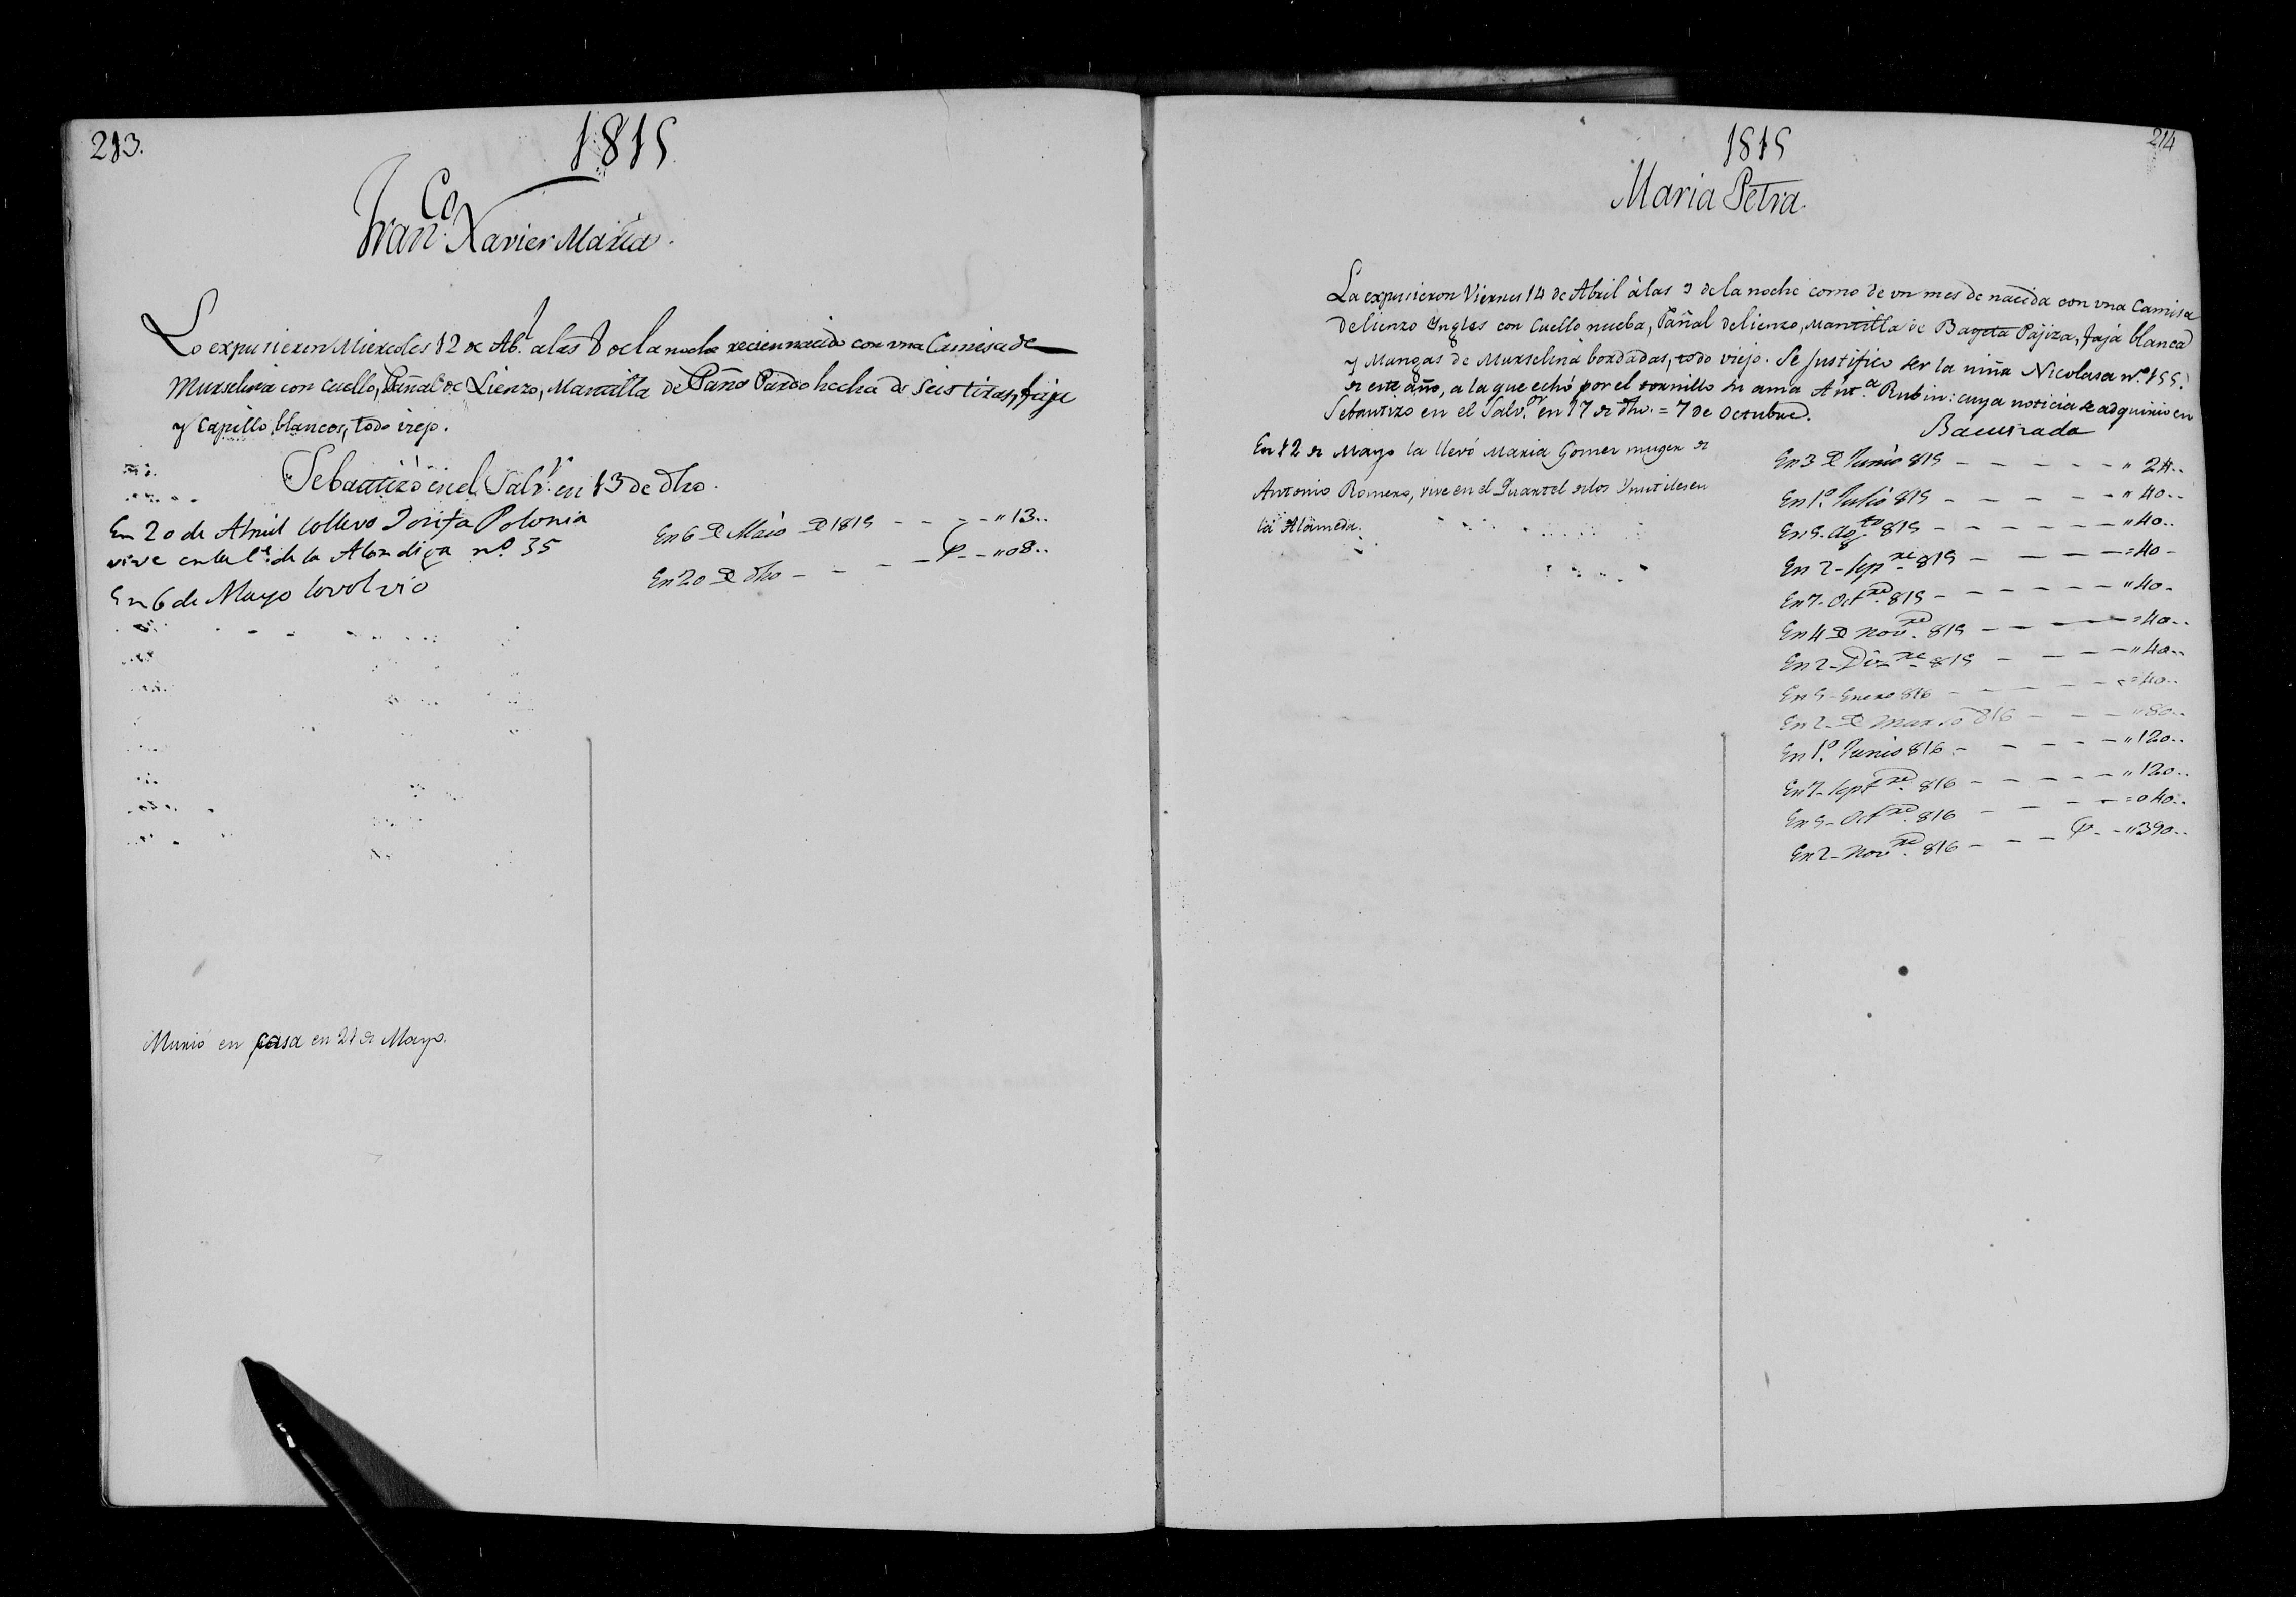 213.
1815.
Fran.co Xavier Maria.
Lo expusieron Miercoles 12 de Ab.l alas 8 de la noche recien nacido con vna Camisa de
Murselina con cuello, Pañal de Lienzo, Mantilla de Paño Pardo hecha de seis tiras, faja
y Capillo blancos, todo viejo.
Sebautizò en el Salv.r en 13 de dho.
En 20 de Abril lo llevo Josefa Polonia
vive en la C.e de la Alondiga n.o 35
En 6 de Mayo lo volvio
En 6 de Maio de 1815 - - - - " 13..
En 20 de dho - - - - P - - " 08..
Murió en casa en 21 de Mayo.
214
1815
Maria Petra.
La expusieron Viernes 14 de Abril à las 9 de la noche como de vn mes de nacida con vna Camisa
de lienzo Yngles con Cuello nueba, Pañal de lienzo, Mantilla de Bayeta Pajiza, faja blanca
y Mangas de Murselina bordadas, todo viejo. Se justifico ser la niña Nicolasa n.o 155.
de este año, a la que echó por el tornillo su ama Ant.a Rubin: cuya noticia se adquirio en
Sebautizo en el Salv.or en 17 de dho. = 7 de Octubre.
En 12 de Mayo la llevó Maria Gomez muger de
Antonio Romero, vive en el Quartel de los Ynutiles en
la Alameda.
En 3 de Junio 815 - - - - - " 24..
En 1.o Julio 815 - - - - - " 40..
En 5. Ag.to 815 - - - - - " 40..
En 2 - Sep.re 815 - - - - = 40 -
En 7 - Oct.re 815 - - - - - " 40 -
En 4 de Nov.re 815 - - - - = 40..
En 2 - Diz.re 815 - - - - " 40..
En 5 - Enero 816 - - - - = 40..
En 2 - de Marzo 816 - - - " 80..
En 1.o Junio 816 - - - - - " 120..
En 7 - Sept.re 816 - - - - - " 120..
En 5 - Oct.re 816 - - - - = 040..
En 2 - Nov.re 816 - - - P - - " 390..